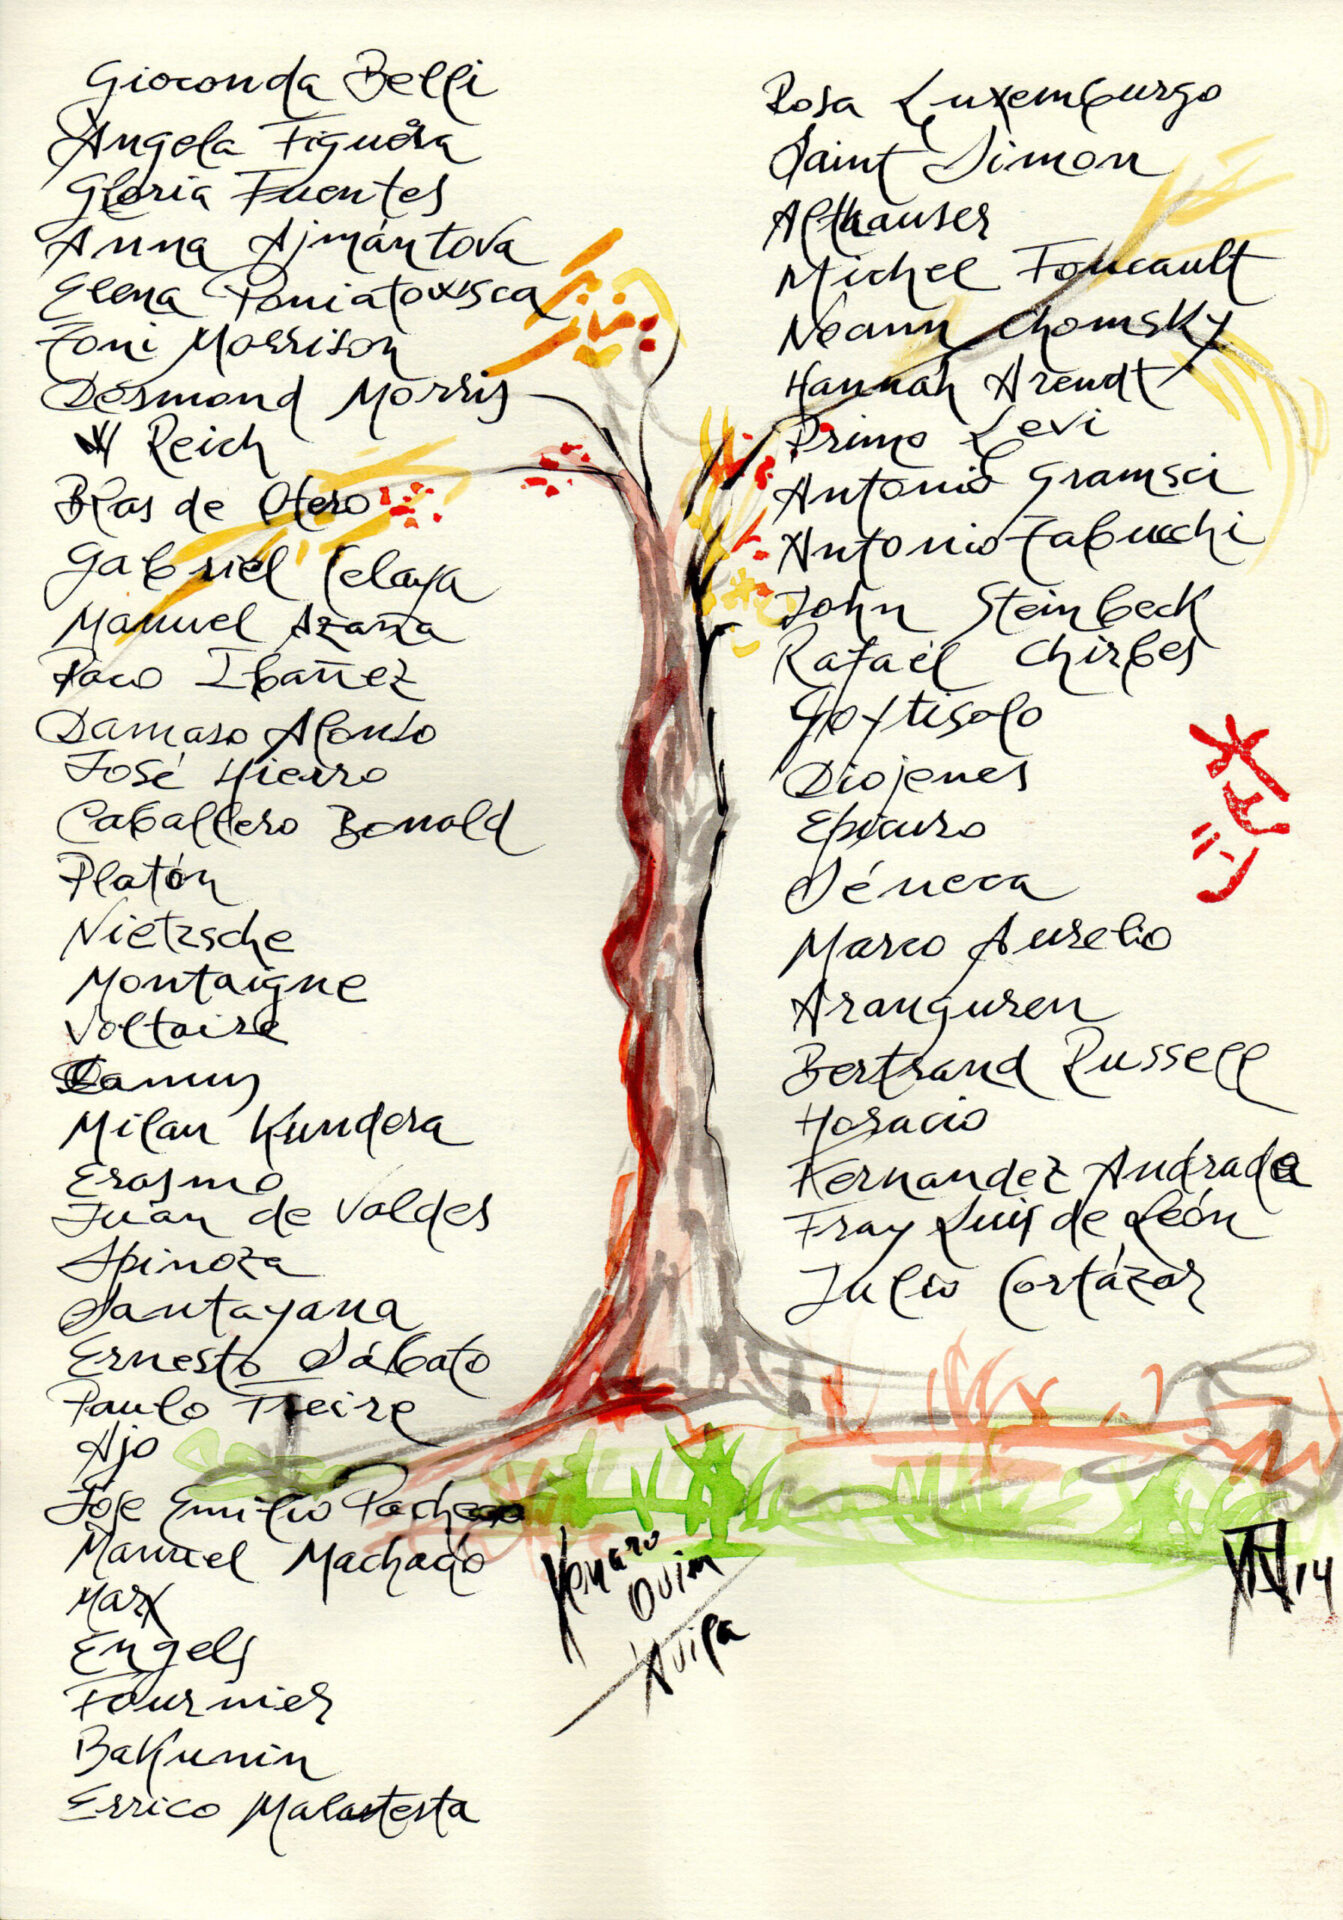 Gioconda Belli
Angela Figuera
Gloria Fuentes
Anna Ajmántova
Elena Poniatowsca
Toni Morrison
Desmond Morris
W Reich
Blas de Otero
Gabriel Celaya
Manuel Azaña
Paco Ibañez
Damaso Alonso
José Hierro
Caballero Bonald
Platón
Nietzsche
Montaigne
Voltaire
Camus
Milan Kundera
Erasmo
Juan de Valdes
Spinoza
Santayana
Ernesto Sábato
Paulo Freire
Ajo
Jose Emilio Pacheco
Manuel Machado
Marx
Engels
Fournier
Bakunin
Errico Malastesta
Rosa Luxemburgo
Saint Simon
Althauser
Michel Foucault
Noann Chomsky
Hannah Arendt
Primo Levi
Antonio Gramsci
Antonio Tabucchi
John Steinbeck
Rafael Chirbes
Goytisolo
Diojenes
Epicuro
Séneca
Marco Aurelio
Aranguren
Bertrand Russell
Horacio
Fernandez Andrada
Fray Luis de León
Julio Cortázar
Ávila
14